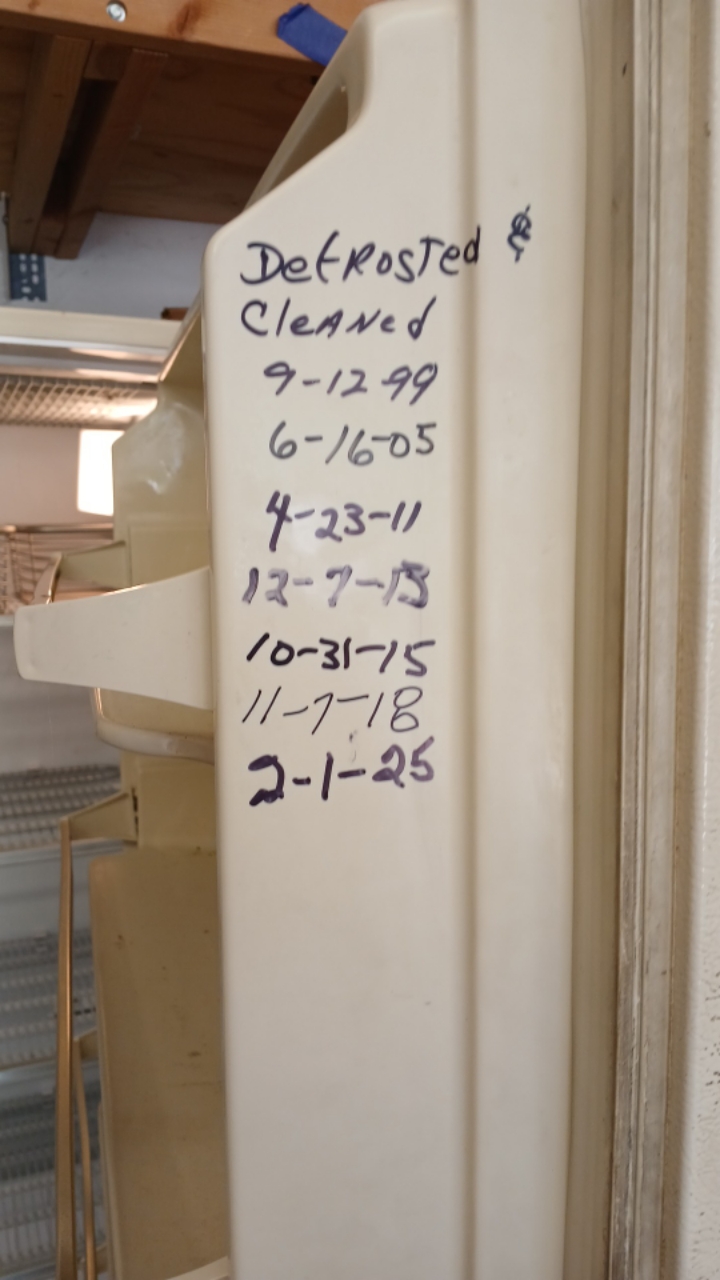 Defrosted &
Cleaned
9-12-99
6-16-05
4-23-11
12-7-13
10-31-15
11-7-18
2-1-25